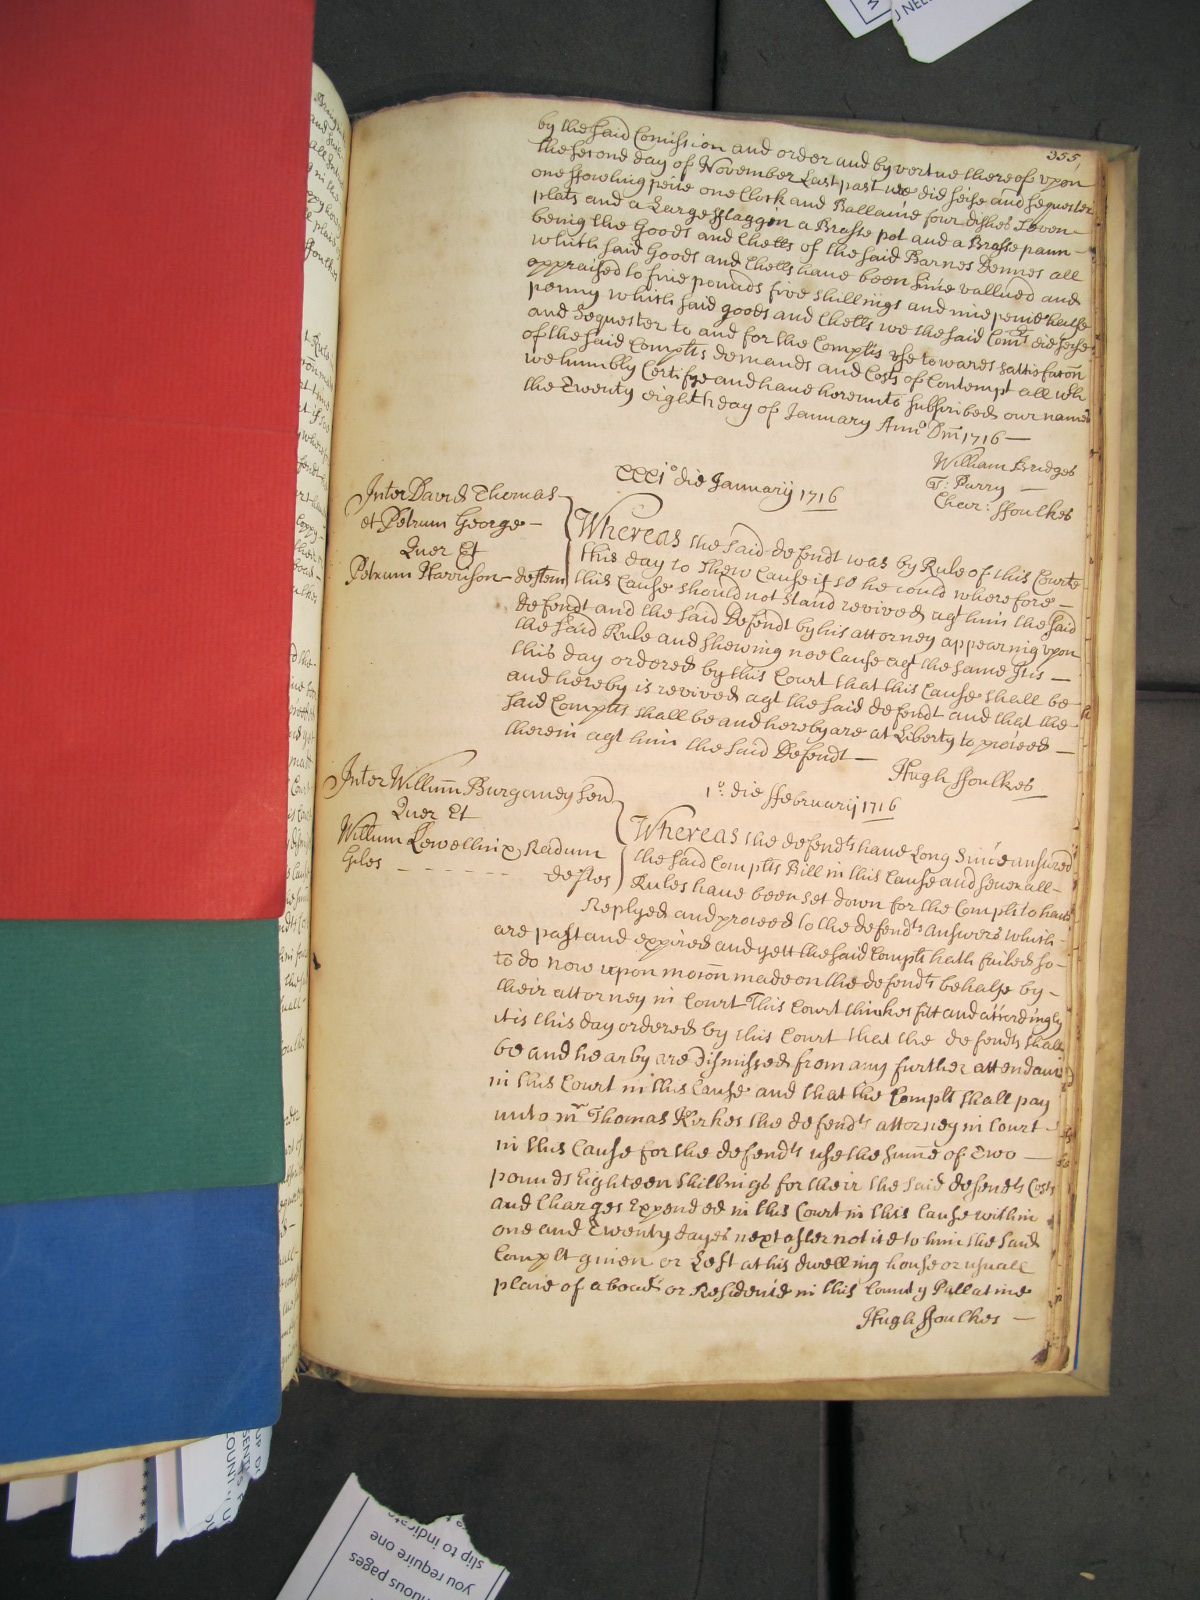 355
by the said Comission and order and by vertue thereof upon
the second day of November Last past we did seise and sequester
one ffowling peice one Clock and Ballance four dishes Seven
plats and a Large fflaggin a Brasse pot and a Brasse pann
being the Goods and Chells of the said Barnes Dennes all
which said Goods and Chells have been since vallued and
appraised to five pounds five shillings and nine pence halfe
penny which said goods and Chells we the said Comrs did seise
and sequester to and for the Complts use towards sattisfacon
of the said Complts demands and Costs of Contempt all wch
we humbly Certifye and have hereunto subscribed our names
the Twenty eighth day of January Anno Dm 1716
William Bridges
T: Parry
Char: ffoulkes
xxxio die January 1716
Inter David Thomas
et Petrum George
Quer Et
Petrum Harrison deftem
Whereas the said defendt was by Rule of this Courte
this day to shew Cause if so he could wherefore
this Cause should not stand revived agt him the said
defendt and the said Defendt by his attorney appearing upon
the said Rule and shewing noe Cause agt the same Itis
this day ordered by this Court that this Cause shall be
and hereby is revived agt the said defendt and that the
said Complts shall be and hereby are at Liberty to proceed
therein agt him the said Defendt
Hugh ffoulkes
1o: die ffebruarij 1716
Inter Willium Burganey send
Quer Et
Willum Lewellin &
Giles - - - - - - deftes
Whereas the defendts have Long Since answred
the said Complts Bill in this Cause and severall
Rules have been set down for the Complt to have
Replyed and proceed to the defendts answers which
are past and expired and yett the said Complt hath failed so
to do now upon mocon made on the defendts behalfe by
their attorney in Court This Court thinkes fitt and accordingly
itis this day ordered by this Court that the defendts shall
be and hearby are dismissed from any further attendance
in this Court in this Cause and that the Complt shall pay
unto mr Thomas Kirkes the defendts attorney in Court
in this Cause for the defendts use the sume of Two
pounds Eighteen shillings for their the said defendts Costs
and Charges Expended in this Court in this Cause within
one and Twenty dayes next after notice to him the said
Complt given or Left at his dwelling house or usuall
place of aboad or Residence in this County Pallatine
Hugh ffoulkes
nuous pages
you require one
slip to indicate